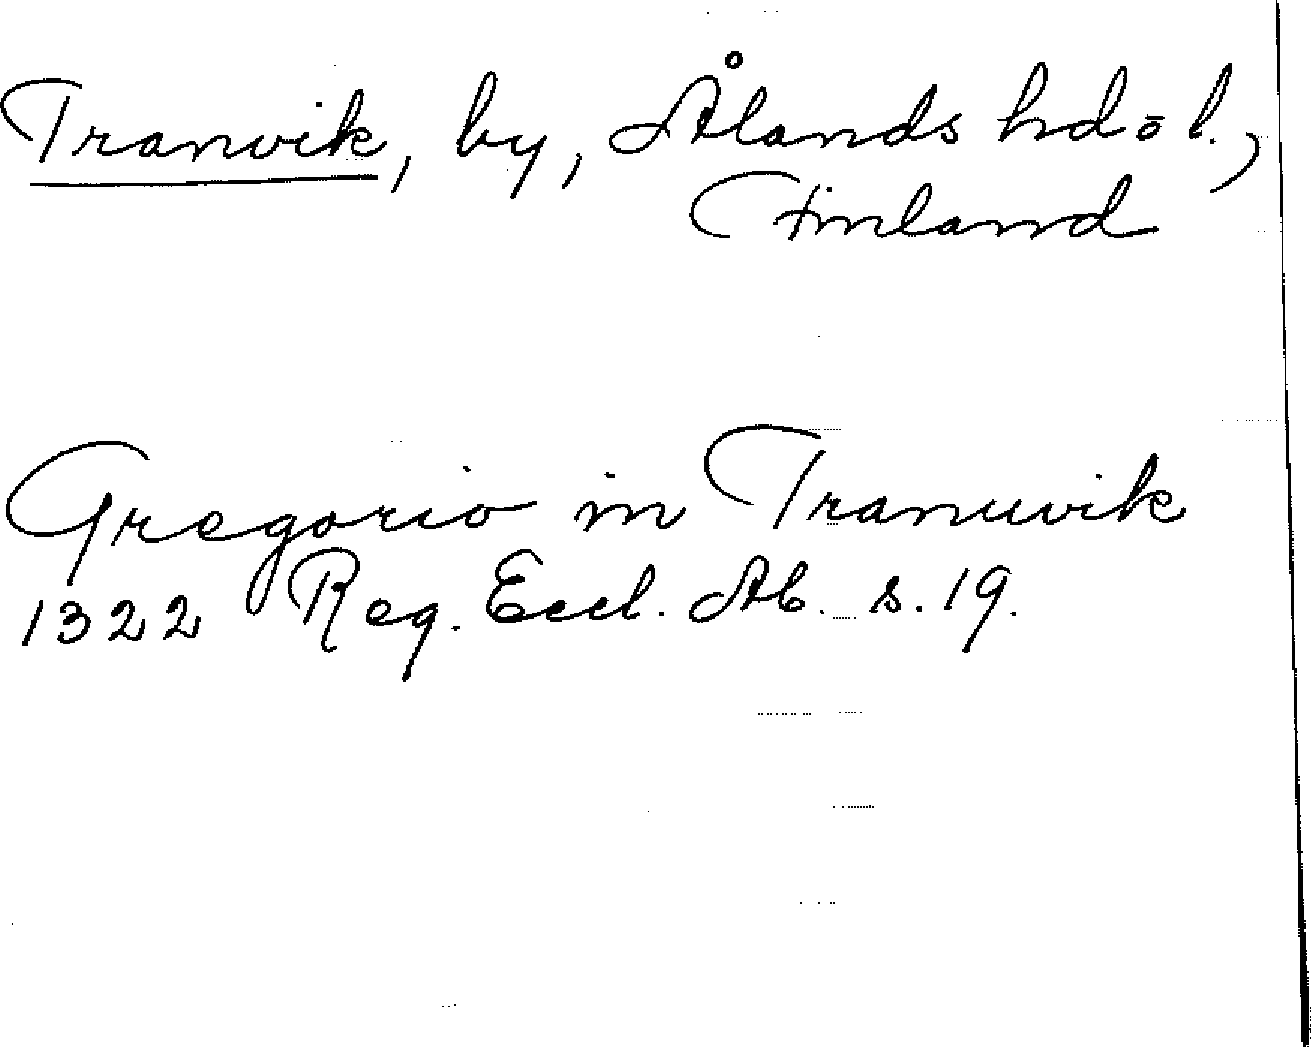 Tranvik, by, Ålands hd o l.,
Finland
Gregorio in Tranuvik
1322 Reg. Eccl. Ab. s. 19.